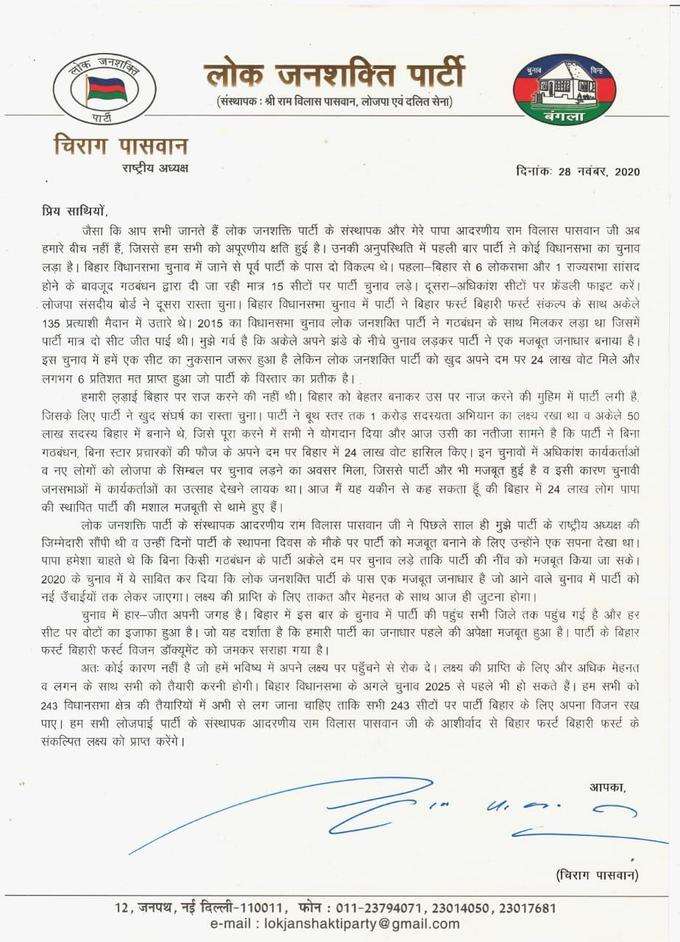 लोक जनशक्ति
पार्टी
लोक जनशक्ति पार्टी
(संस्थापक : श्री राम विलास पासवान, लोजपा एवं दलित सेना)
चुनाव चिन्ह
बंगला
चिराग पासवान
राष्ट्रीय अध्यक्ष
दिनांकः 28 नवंबर, 2020
प्रिय साथियों,
जैसा कि आप सभी जानते हैं लोक जनशक्ति पार्टी के संस्थापक और मेरे पापा आदरणीय राम विलास पासवान जी अब
हमारे बीच नहीं हैं, जिससे हम सभी को अपूरणीय क्षति हुई है। उनकी अनुपस्थिति में पहली बार पार्टी ने कोई विधानसभा का चुनाव
लड़ा है। बिहार विधानसभा चुनाव में जाने से पूर्व पार्टी के पास दो विकल्प थे। पहला–बिहार से 6 लोकसभा और 1 राज्यसभा सांसद
होने के बावजूद गठबंधन द्वारा दी जा रही मात्र 15 सीटों पर पार्टी चुनाव लड़े। दूसरा–अधिकांश सीटों पर फ्रेंडली फाइट करें।
लोजपा संसदीय बोर्ड ने दूसरा रास्ता चुना। बिहार विधानसभा चुनाव में पार्टी ने बिहार फर्स्ट बिहारी फर्स्ट संकल्प के साथ अकेले
135 प्रत्याशी मैदान में उतारे थे। 2015 का विधानसभा चुनाव लोक जनशक्ति पार्टी ने गठबंधन के साथ मिलकर लड़ा था जिसमें
पार्टी मात्र दो सीट जीत पाई थी। मुझे गर्व है कि अकेले अपने झंडे के नीचे चुनाव लड़कर पार्टी ने एक मजबूत जनाधार बनाया है।
इस चुनाव में हमें एक सीट का नुकसान जरूर हुआ है लेकिन लोक जनशक्ति पार्टी को खुद अपने दम पर 24 लाख वोट मिले और
लगभग 6 प्रतिशत मत प्राप्त हुआ जो पार्टी के विस्तार का प्रतीक है।
हमारी लड़ाई बिहार पर राज करने की नहीं थी। बिहार को बेहतर बनाकर उस पर नाज करने की मुहिम में पार्टी लगी है,
जिसके लिए पार्टी ने खुद संघर्ष का रास्ता चुना। पार्टी ने बूथ स्तर तक 1 करोड सदस्यता अभियान का लक्ष्य रखा था व अकेले 50
लाख सदस्य बिहार में बनाने थे, जिसे पूरा करने में सभी ने योगदान दिया और आज उसी का नतीजा सामने है कि पार्टी ने बिना
गठबंधन, बिना स्टार प्रचारकों की फौज के अपने दम पर बिहार में 24 लाख वोट हासिल किए। इन चुनावों में अधिकांश कार्यकर्ताओं
व नए लोगों को लोजपा के सिम्बल पर चुनाव लड़ने का अवसर मिला, जिससे पार्टी और भी मजबूत हुई है व इसी कारण चुनावी
जनसभाओं में कार्यकर्ताओं का उत्साह देखने लायक था। आज मैं यह यकीन से कह सकता हूँ की बिहार में 24 लाख लोग पापा
की स्थापित पार्टी की मशाल मजबूती से थामे हुए हैं।
लोक जनशक्ति पार्टी के संस्थापक आदरणीय राम विलास पासवान जी ने पिछले साल ही मुझे पार्टी के राष्ट्रीय अध्यक्ष की
जिम्मेदारी सौंपी थी व उन्हीं दिनों पार्टी के स्थापना दिवस के मौके पर पार्टी को मजबूत बनाने के लिए उन्होंने एक सपना देखा था।
पापा हमेशा चाहते थे कि बिना किसी गठबंधन के पार्टी अकेले दम पर चुनाव लड़े ताकि पार्टी की नींव को मजबूत किया जा सके।
2020 के चुनाव में ये साबित कर दिया कि लोक जनशक्ति पार्टी के पास एक मजबूत जनाधार है जो आने वाले चुनाव में पार्टी को
नई उँचाईयों तक लेकर जाएगा। लक्ष्य की प्राप्ति के लिए ताकत और मेहनत के साथ आज ही जुटना होगा।
चुनाव में हार–जीत अपनी जगह है। बिहार में इस बार के चुनाव में पार्टी की पहुंच सभी जिले तक पहुंच गई है और हर
सीट पर वोटों का इजाफा हुआ है। जो यह दर्शाता है कि हमारी पार्टी का जनाधार पहले की अपेक्षा मजबूत हुआ है। पार्टी के बिहार
फर्स्ट बिहारी फर्स्ट विजन डॉक्यूमेंट को जमकर सराहा गया है।
अतः कोई कारण नहीं है जो हमें भविष्य में अपने लक्ष्य पर पहुँचने से रोक दे। लक्ष्य की प्राप्ति के लिए और अधिक मेहनत
व लगन के साथ सभी को तैयारी करनी होगी। बिहार विधानसभा के अगले चुनाव 2025 से पहले भी हो सकते हैं। हम सभी को
243 विधानसभा क्षेत्र की तैयारियों में अभी से लग जाना चाहिए ताकि सभी 243 सीटों पर पार्टी बिहार के लिए अपना विजन रख
पाए। हम सभी लोजपाई पार्टी के संस्थापक आदरणीय राम विलास पासवान जी के आशीर्वाद से बिहार फर्स्ट बिहारी फर्स्ट के
संकल्पित लक्ष्य को प्राप्त करेंगे।
आपका,
(चिराग पासवान)
12, जनपथ, नई दिल्ली–110011, फोन : 011-23794071, 23014050, 23017681
e-mail : lokjanshaktiparty@gmail.com